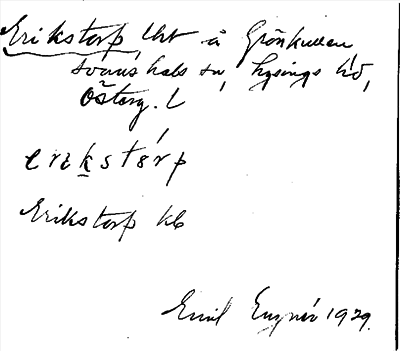 Erikstorp lht å Grönkullen
Svanshals sn, Lysings hd,
Österg. l
erikstórp
Erikstorp kb
Emil Engnér 1929.